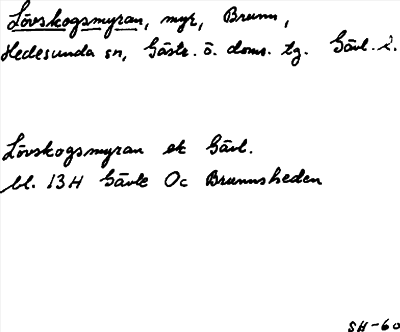 Lövskogsmyran, myr, Brunn,
Hedesunda sn, Gästr. ö. doms. tg. Gävl. l.
Lövskogsmyran ek Gävl.
bl. 13H Gävle Oc Brunnsheden
SH-60